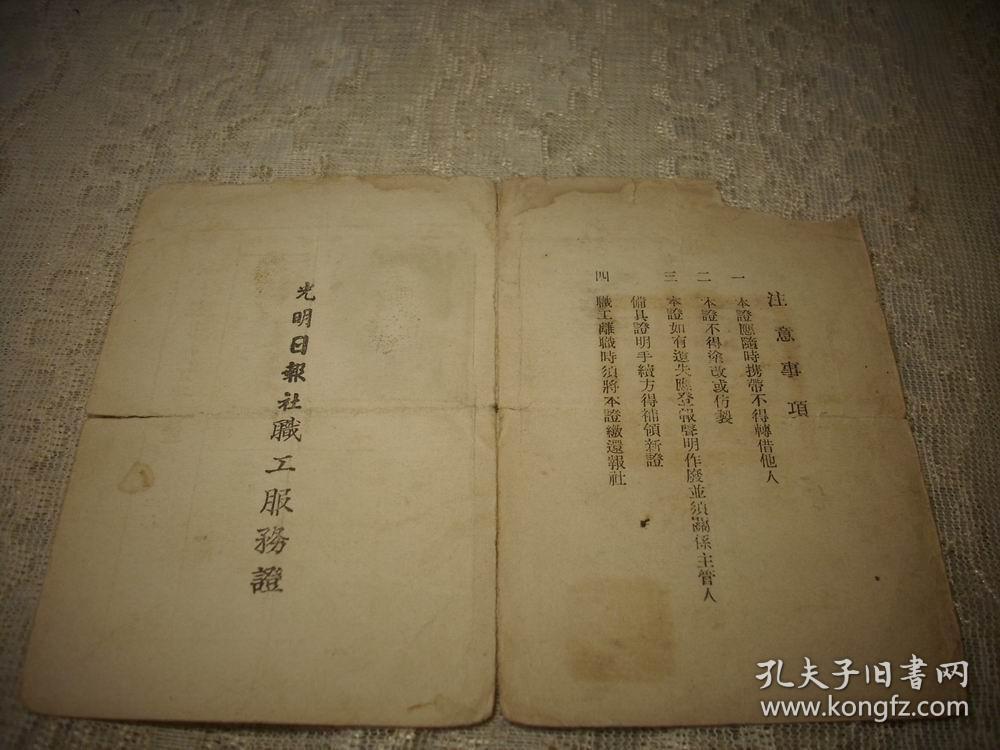 注意事項
一 本證應隨時携帶不得轉借他人
二 本證不得塗改或仿製
三 本證如有遺失應登報聲明作廢並須關係主管人
備具證明手續方得補領新證
四 職工離職時須將本證繳還報社
光明日報社職工服務證
孔夫子旧書网
www.kongfz.com